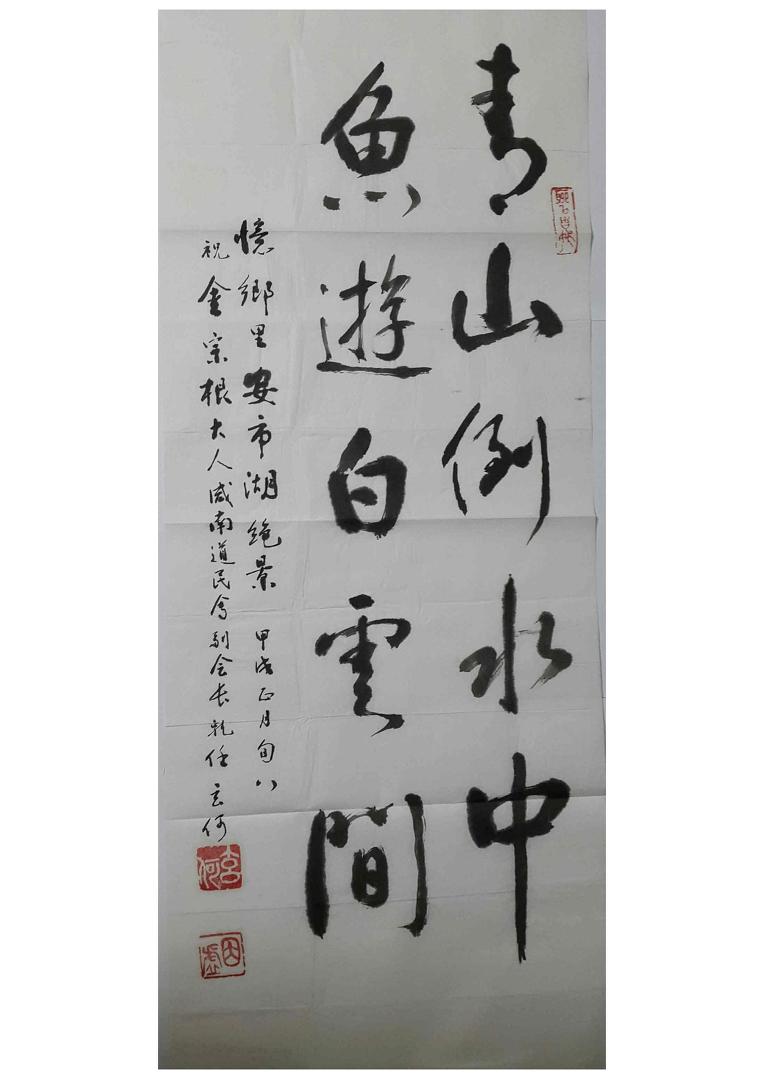 青山倒水中
魚遊白雲間
憶鄉里安市湖絶景 甲戌正月旬八
祝 金宗根大人咸南道民會副会长就任 玄何
玄何